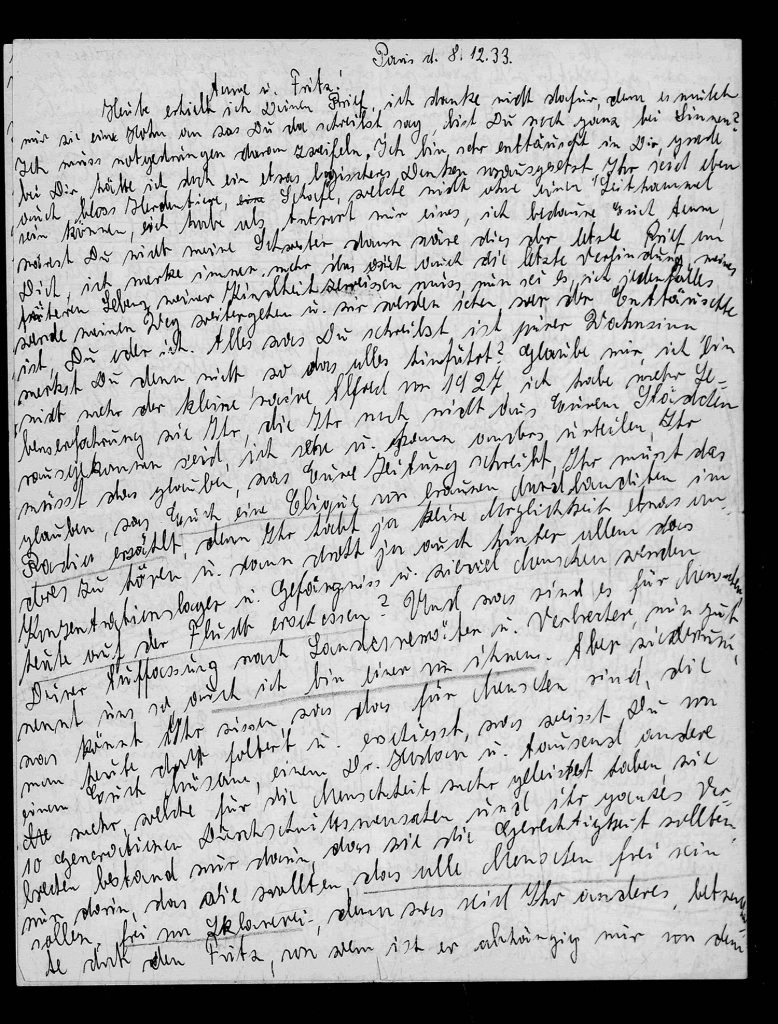 Paris d. 8.12.33.
Anne u. Fritz!
Heute erhielt ich Deinen Brief, ich danke nicht dafür, denn es mutete
mir wie eine Hohn an was Du da schreibst sag, bist Du noch ganz bei Sinnen?
Ich muss notgedrungen daran zweifeln. Ich bin sehr enttäuscht in Dir, grade
bei Dir hätte ich doch ein etwas logischeres Denken vorausgesetzt, Ihr seid eben
auch bloss Herdentiere, Schafe, welche nicht ohne einen Leithammel
sein können, ich habe als Antwort nur eines, ich bedaure Euch Anne,
wärest Du nicht meine Schwester dann wäre dies der letzte Brief an
Dich, ich merke immer mehr das ich auch die letzte Verbindung meines
früheren Lebens meiner Kindheit zerreissen muss, nun sei es, ich jedenfalls
werde meinen Weg weitergehen u. wir werden sehen wer der Enttäuschte
ist, Du oder ich. Alles was Du schreibst ist purer Wahnsinn
merkst Du denn nicht wo das alles hinführt? Glaube mir, ich bin
nicht mehr der kleine naive Alfred von 1927 ich habe mehr Le-
benserfahrung wie Ihr, die Ihr noch nicht aus Eurem Städtchen
rausgekommen seid, ich sehe u. kann anders urteilen, Ihr
müsst das glauben, was Eure Zeitung schreibt, Ihr müsst das
glauben, was Euch eine Clique von braunen Mordbanditen im
Radio erzählt, denn Ihr habt ja keine Möglichkeit etwas an-
deres zu hören u. dann droht ja auch hinter allem das
Konzentrationslager u. Gefängniss u. wieviel Menschen werden
heute auf der Flucht erschossen? Und was sind es für Menschen
Deiner Auffassung nach Landesverräter u. Verbrecher, nun gut
nennt uns so auch ich bin einer von ihnen. Aber wiederum,
was könnt Ihr wissen was das für Menschen sind, die
man heute dort foltert u. erschiesst, was weisst Du von
einem Erich Mühsam, einem Dr. Hodann u. tausend andere
die mehr, welche für die Menschheit mehr geleistet haben wie
10 Generationen Durchschnittsmenschen und ihr ganzes Ver-
brechen bestand nur darin, das sie die Gerechtigkeit wollten
nur darin, das sie wollten, das alle Menschen frei sein
sollen, frei von Sklaverei, denn was seid Ihr anderes, betrach
te doch den Fritz, von wem ist er abhängig nur von dem